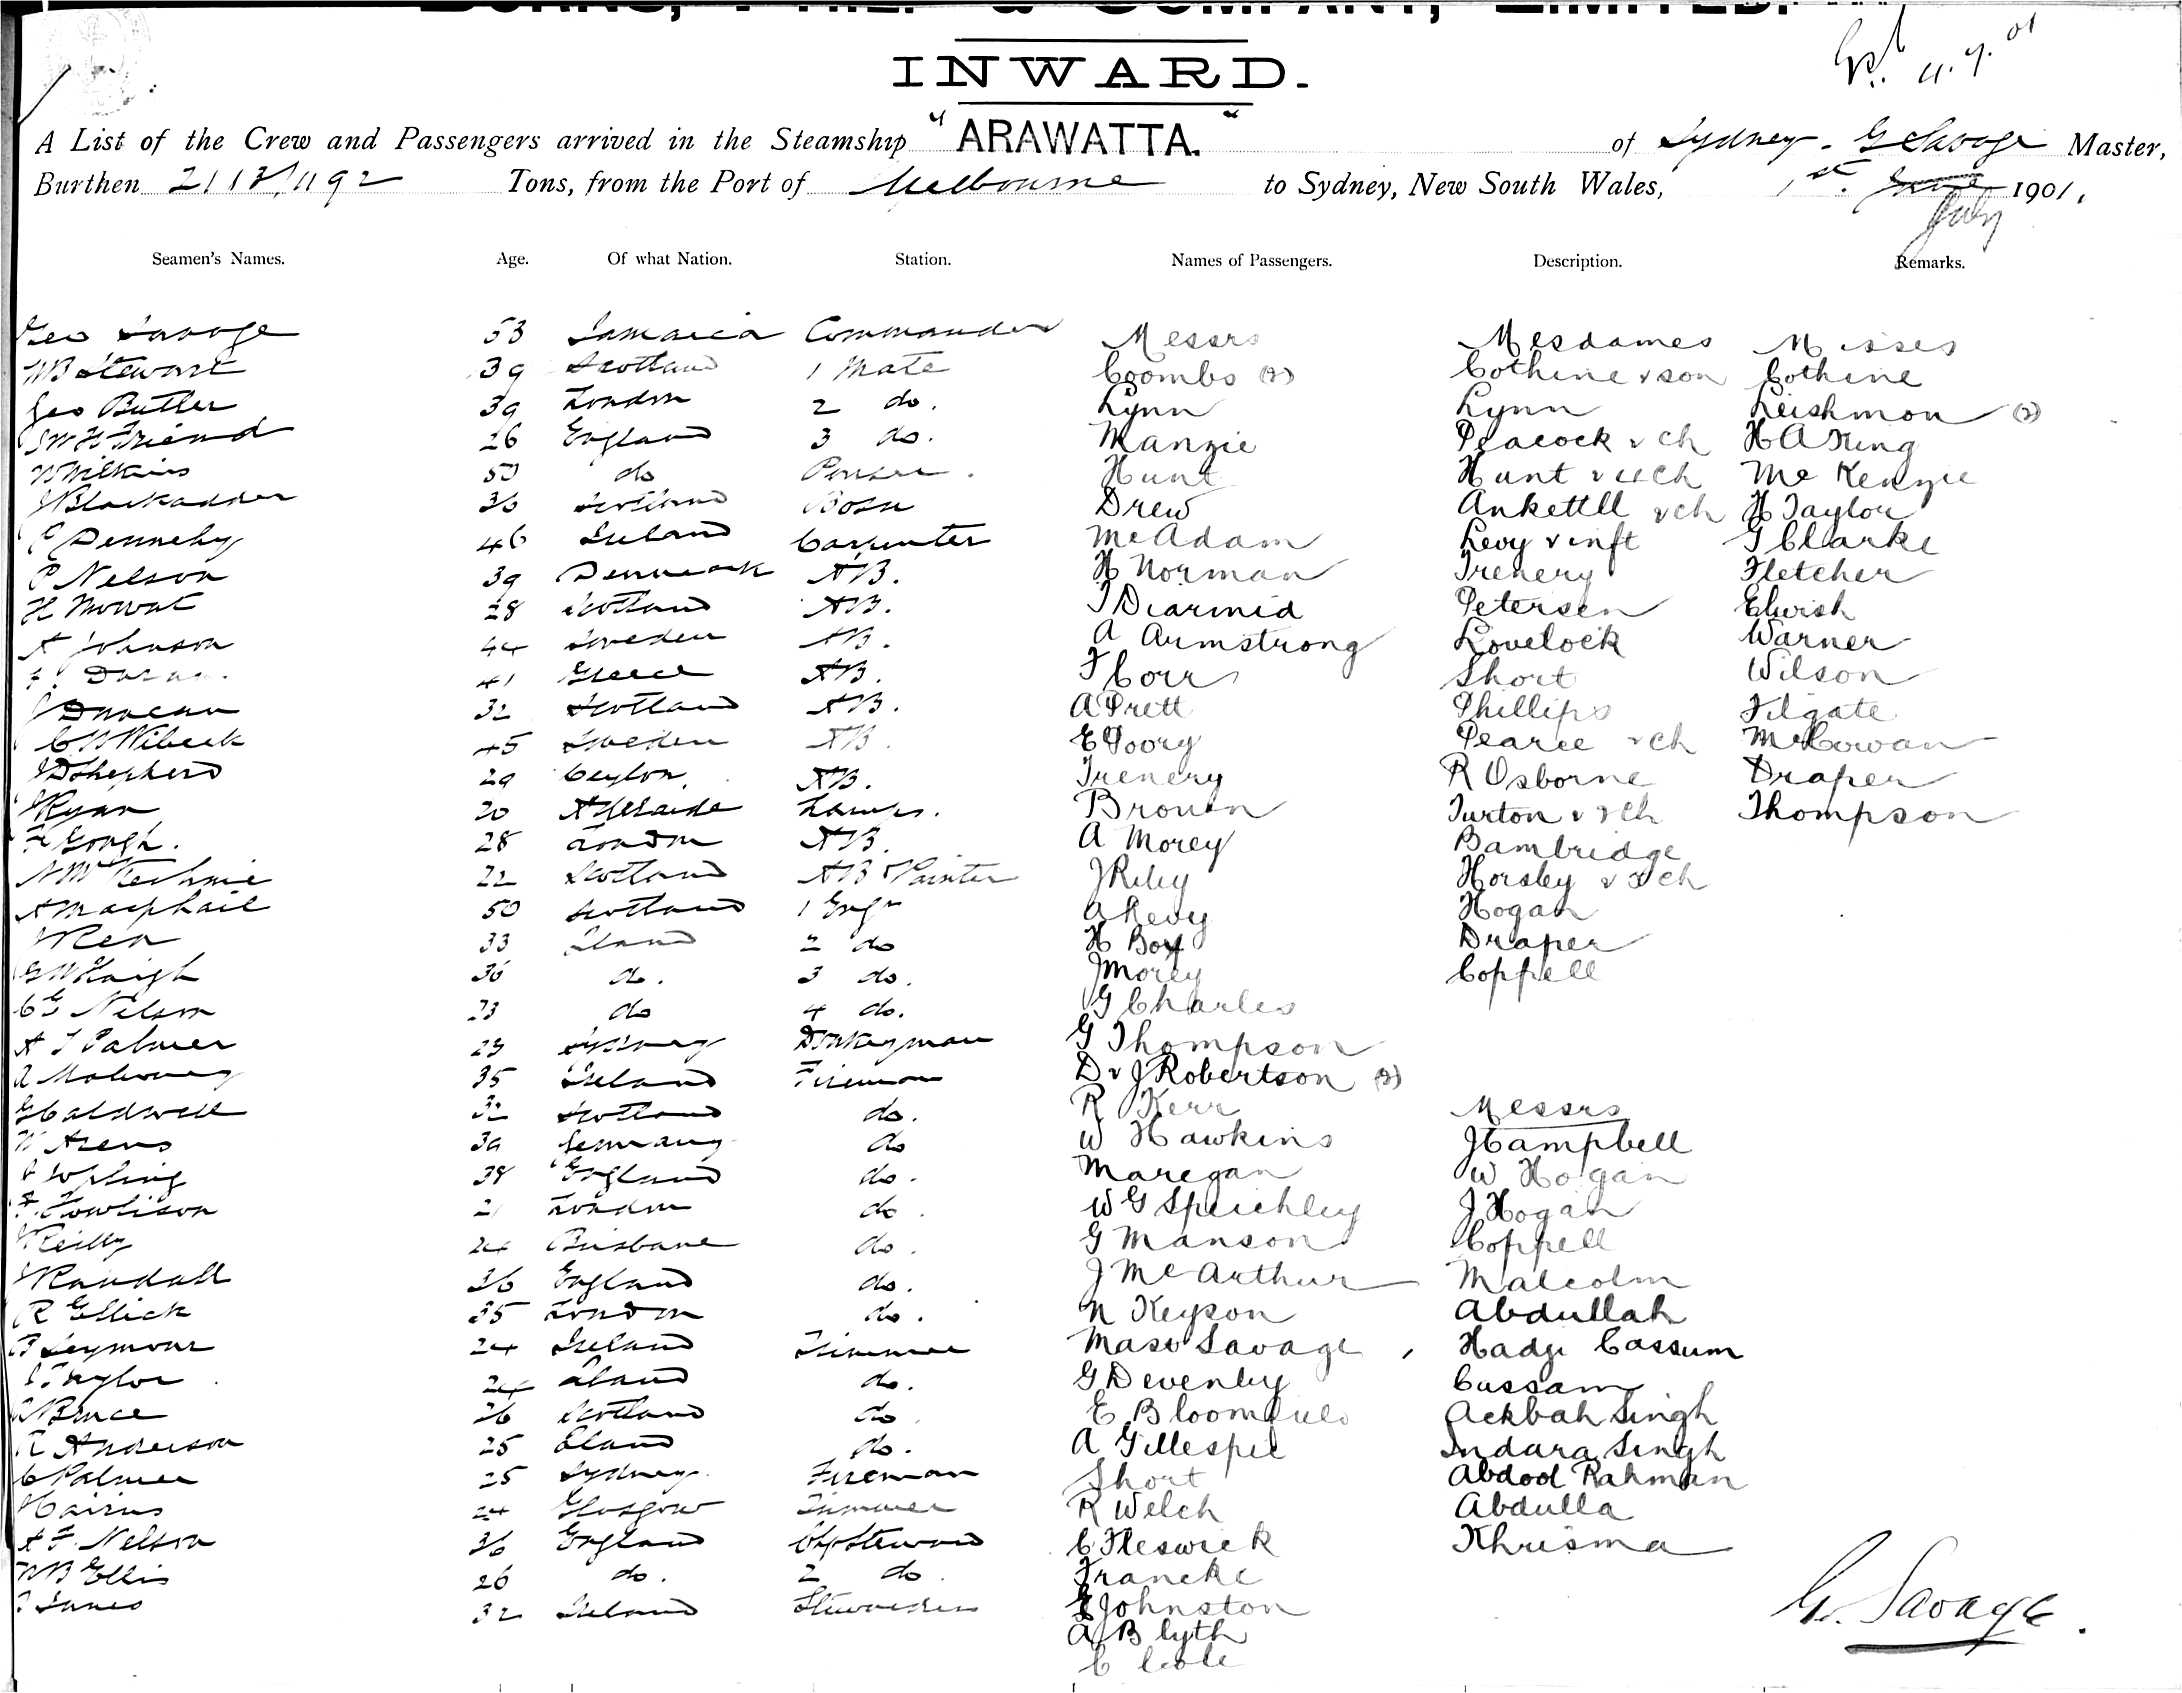 BURNS, PHILP & COMPANY, LIMITED.
INWARD.
4. 7. 01
A List of the Crew and Passengers arrived in the Steamship "ARAWATTA." of Sydney - G Savage Master,
Burthen 2118/1192 Tons, from the Port of Melbourne to Sydney, New South Wales, 1st June 1901.
July
Seamen's Names. Age. Of what Nation. Station. Names of Passengers. Description. Remarks.
Geo Savage 53 Jamaica Commander Messrs Mesdames Misses
W B Stewart 39 Scotland 1 Mate Coombs (2) Cothine & son Cothine
Geo Butler 39 London 2 do. Lynn Lynn Leishmon (2)
S W H Friend 26 England 3 do. Manzie Peacock & ch H A King
W Wilkins do Purser. Hunt Hunt & ch McKenzie
J Blackadder Scotland Bosn Drew Ankettll & ch H Taylor
Dennehy 46 Ireland Carpenter McAdam Levy & inft G Clarke
P Nelson 39 Denmark AB. H Norman Trenery Fletcher
H Mowat 28 Scotland AB. J Diarmid Petersen Elwish
A Johnson 44 Sweden AB. A Armstrong Lovelock Warner
41 Greece AB. J Corr Short Wilson
J Duncan 32 Scotland AB. A Prett Phillips Filgate
C W Wibeck 45 Sweden AB. E Poory Pearce & ch McCowan
J D Shepherd 29 Ceylon AB. Trenery R Osborne Draper
J Ryan 20 Adelaide Lamps. Brown Turton & ch Thompson
F Gough. 28 London AB. A Morey Bambridge
A McKechnie 22 Scotland AB & Painter J Riley Horsley & ch
A Macphail 50 Scotland 1 Engr A Levy Hogan
J Rea 33 2 do H Box Draper
G W Haigh 36 do. 3 do. J Morey Coppell
C G Nelson 23 do 4 do. G Charles
A J Palmer 29 Sydney Donkeyman G Thompson
Mahoney 35 Ireland Fireman D & J Robertson (2)
G Caldwell 32 Scotland do. R Kerr Messrs
W Arens 39 Germany do W Hawkins J Campbell
Topling 38 England do. Maregan W Hogan
F. Towlison 21 London do. W G Speichley J Hogan
J Reilly 24 Brisbane do. G Manson Coppell
J Randall 36 England do. J McArthur Malcolm
R Ellick 35 London do. N Keyson Abdullah
Seymour 24 Ireland Trimmer Mast Savage, Hadji Cassum
Taylor 24 do. G Devenley Cassam
Bruce 26 Scotland do. E Bloomfield Ackbah Singh
Anderson 25 do. A Gillespie Indara Singh
C Palmer 25 Sydney. Fireman Short Abdool Rahman
Cairns 24 Glasgow Trimmer R Welch Abdulla
A F. Nelson 36 England Chf Steward C Fleswick Khrisma
W B Ellis 26 do. 2 do. Francke
Innes 32 Ireland Stewardess E Johnston
A Blyth
C Cole
G. Savage.